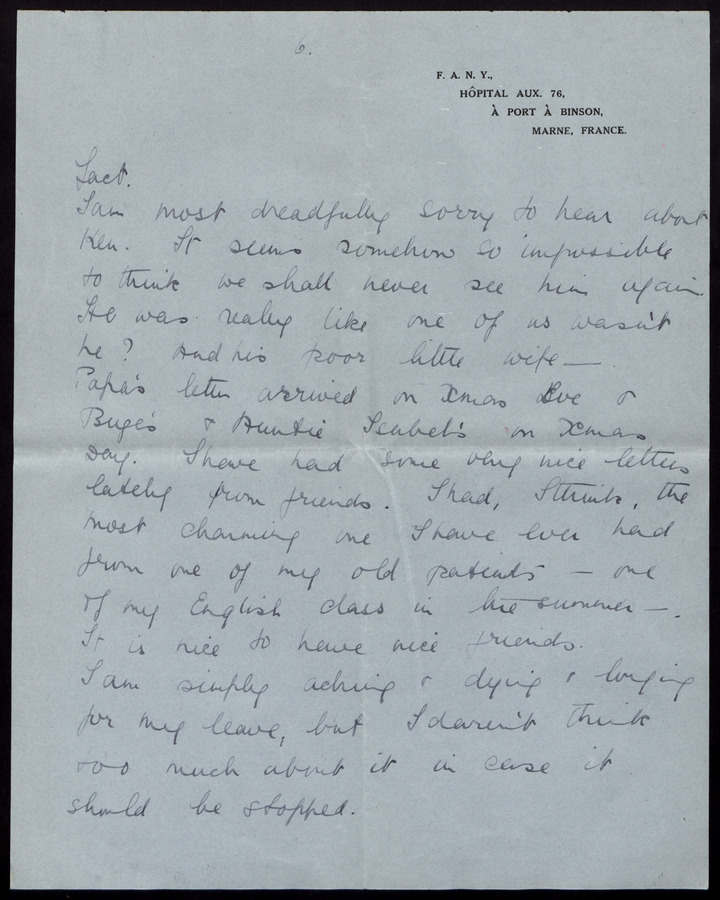 6.
F. A. N. Y.,
HÔPITAL AUX. 76,
À PORT À BINSON,
MARNE, FRANCE.
Fact.
I am most dreadfully sorry to hear about
Ken. It seems somehow so impossible
to think we shall never see him again.
He was really like one of us wasn't
he? And his poor little wife —
Papa's letter arrived on Xmas Eve &
& Auntie Isabel's on Xmas
Day. I have had some very nice letters
lately from friends. I had, I think, the
most charming one I have ever had
from one of my old patients – one
of my English class in the summer –.
It is nice to have nice friends.
I am simply aching & dying & longing
for my leave, but I daren't think
too much about it in case it
should be stopped.